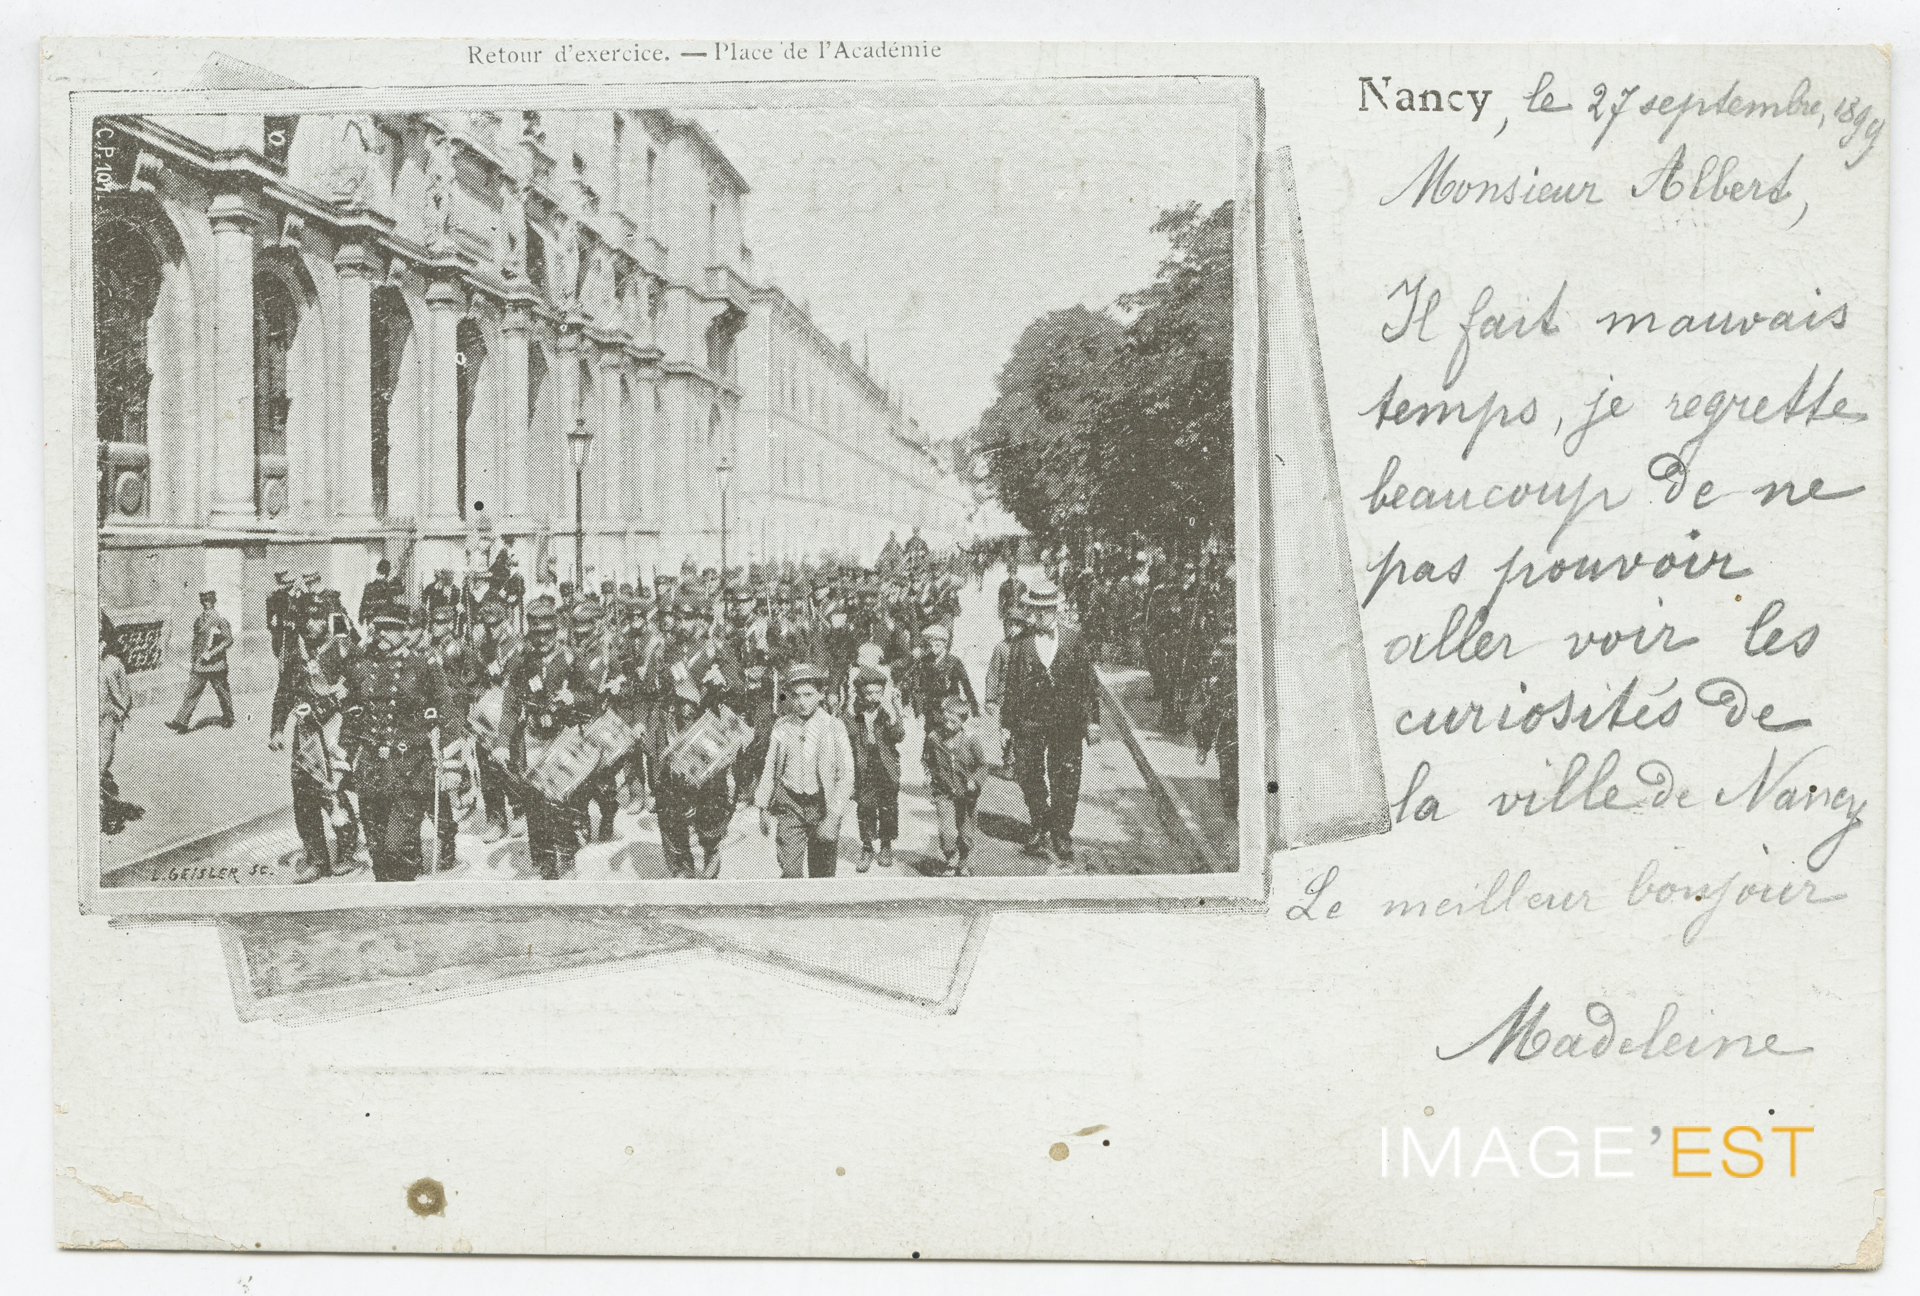 Retour d'exercice. — Place de l'Académie
C.P. 101
L. GEISLER SC.
Nancy, le 27 septembre, 1899
Monsieur Albert,
Il fait mauvais
temps, je regrette
beaucoup de ne
pas pouvoir
aller voir les
curiosités de
la ville de Nancy
Le meilleur bonjour
Madeleine
IMAGE'EST